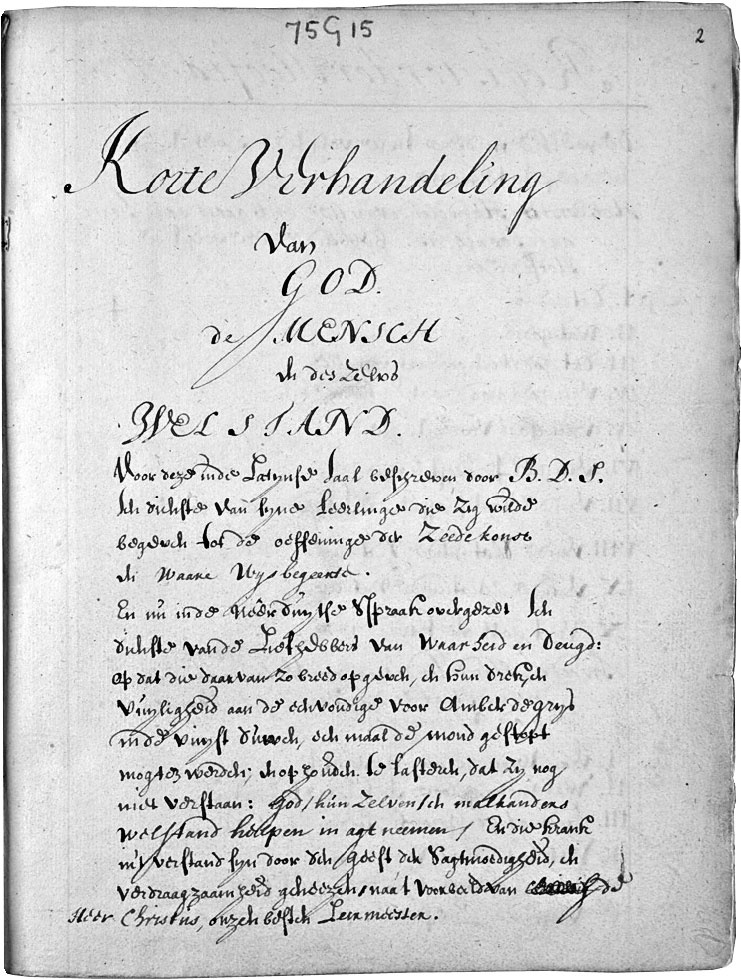 75G15
2
Korte Verhandeling
Van
GOD.
de MENSCH
en deszelvs
WELSTAND.
Voor deze inde Latynse Taal beschreven door B. D. S.
ten dienste van syne Leerlinge die zig wilde
begeven tot de oeffeninge der Zeedekonst
en Waare Wysbegeerte.
En nu inde Neerduytse Spraak overgezet ten
dienste van de Liefhebbers van Waarheid en Deugd:
op dat die daar van zo breed opgeven, en hun drek en
vuyligheid aan de eenvoudige voor Amber de grys
in de vuyst duwen, een maal de mond gestopt
mogten werden; en ophouden te lasteren, dat zy nog
niet verstaan: God, hun zelven, en malkanders
welstand helpen in agt neemen, En die krank
in 't verstand syn door den geest der Sagtmoedigheid, en
verdraagzaamheid geneezen, na 't voorbeeld van de
Heer Christus, onzen besten Leermeester.